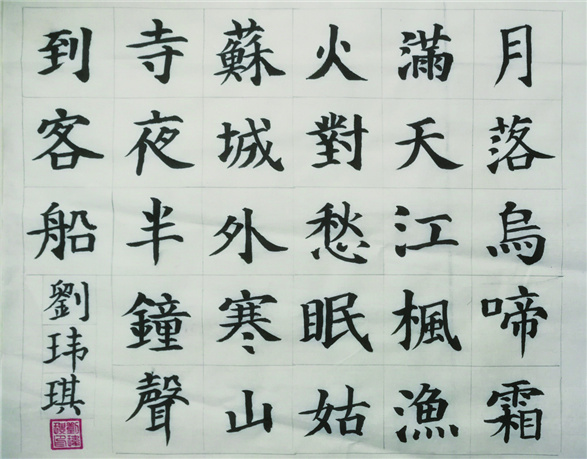 月落烏啼霜
滿天江楓漁
火對愁眠姑
蘇城外寒山
寺夜半鐘聲
到客船
劉玮琪